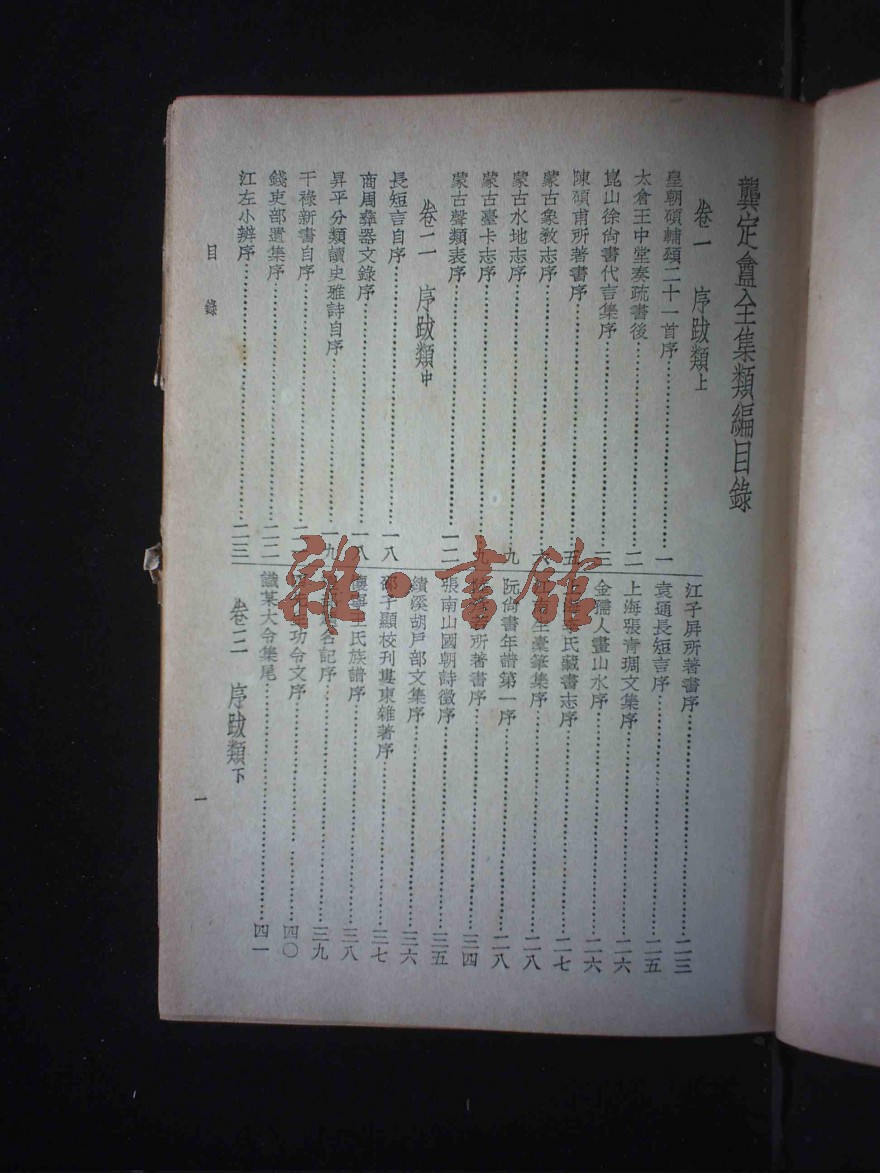 龔定盦全集類編目錄
卷一　序跋類上
皇朝碩輔頌二十一首序……一
太倉王中堂奏疏書後……二
崑山徐尙書代言集序……三
陳碩甫所著書序……五
蒙古象敎志序……六
蒙古水地志序……九
蒙古臺卡志序……九
蒙古聲類表序……一二
卷二　序跋類中
長短言自序……一八
商周彝器文錄序……一八
昇平分類讀史雅詩自序……一九
干祿新書自序……二
錢吏部遺集序……二二
江左小辨序……二三
江子屏所著書序……二三
袁通長短言序……二五
上海張靑琱文集序……二六
金孺人畫山水序……二六
氏藏書志序……二七
生臺筆集序……二八
阮尙書年譜第一序……二八
所著書序……三四
張南山國朝詩徵序……三五
績溪胡戶部文集序……三六
邵子顯校刊婁東雜著序……三七
王氏族譜序……三八
名記序……三九
功令文序……四〇
識某大令集尾……四一
卷三　序跋類下
目錄
一
雜·書館